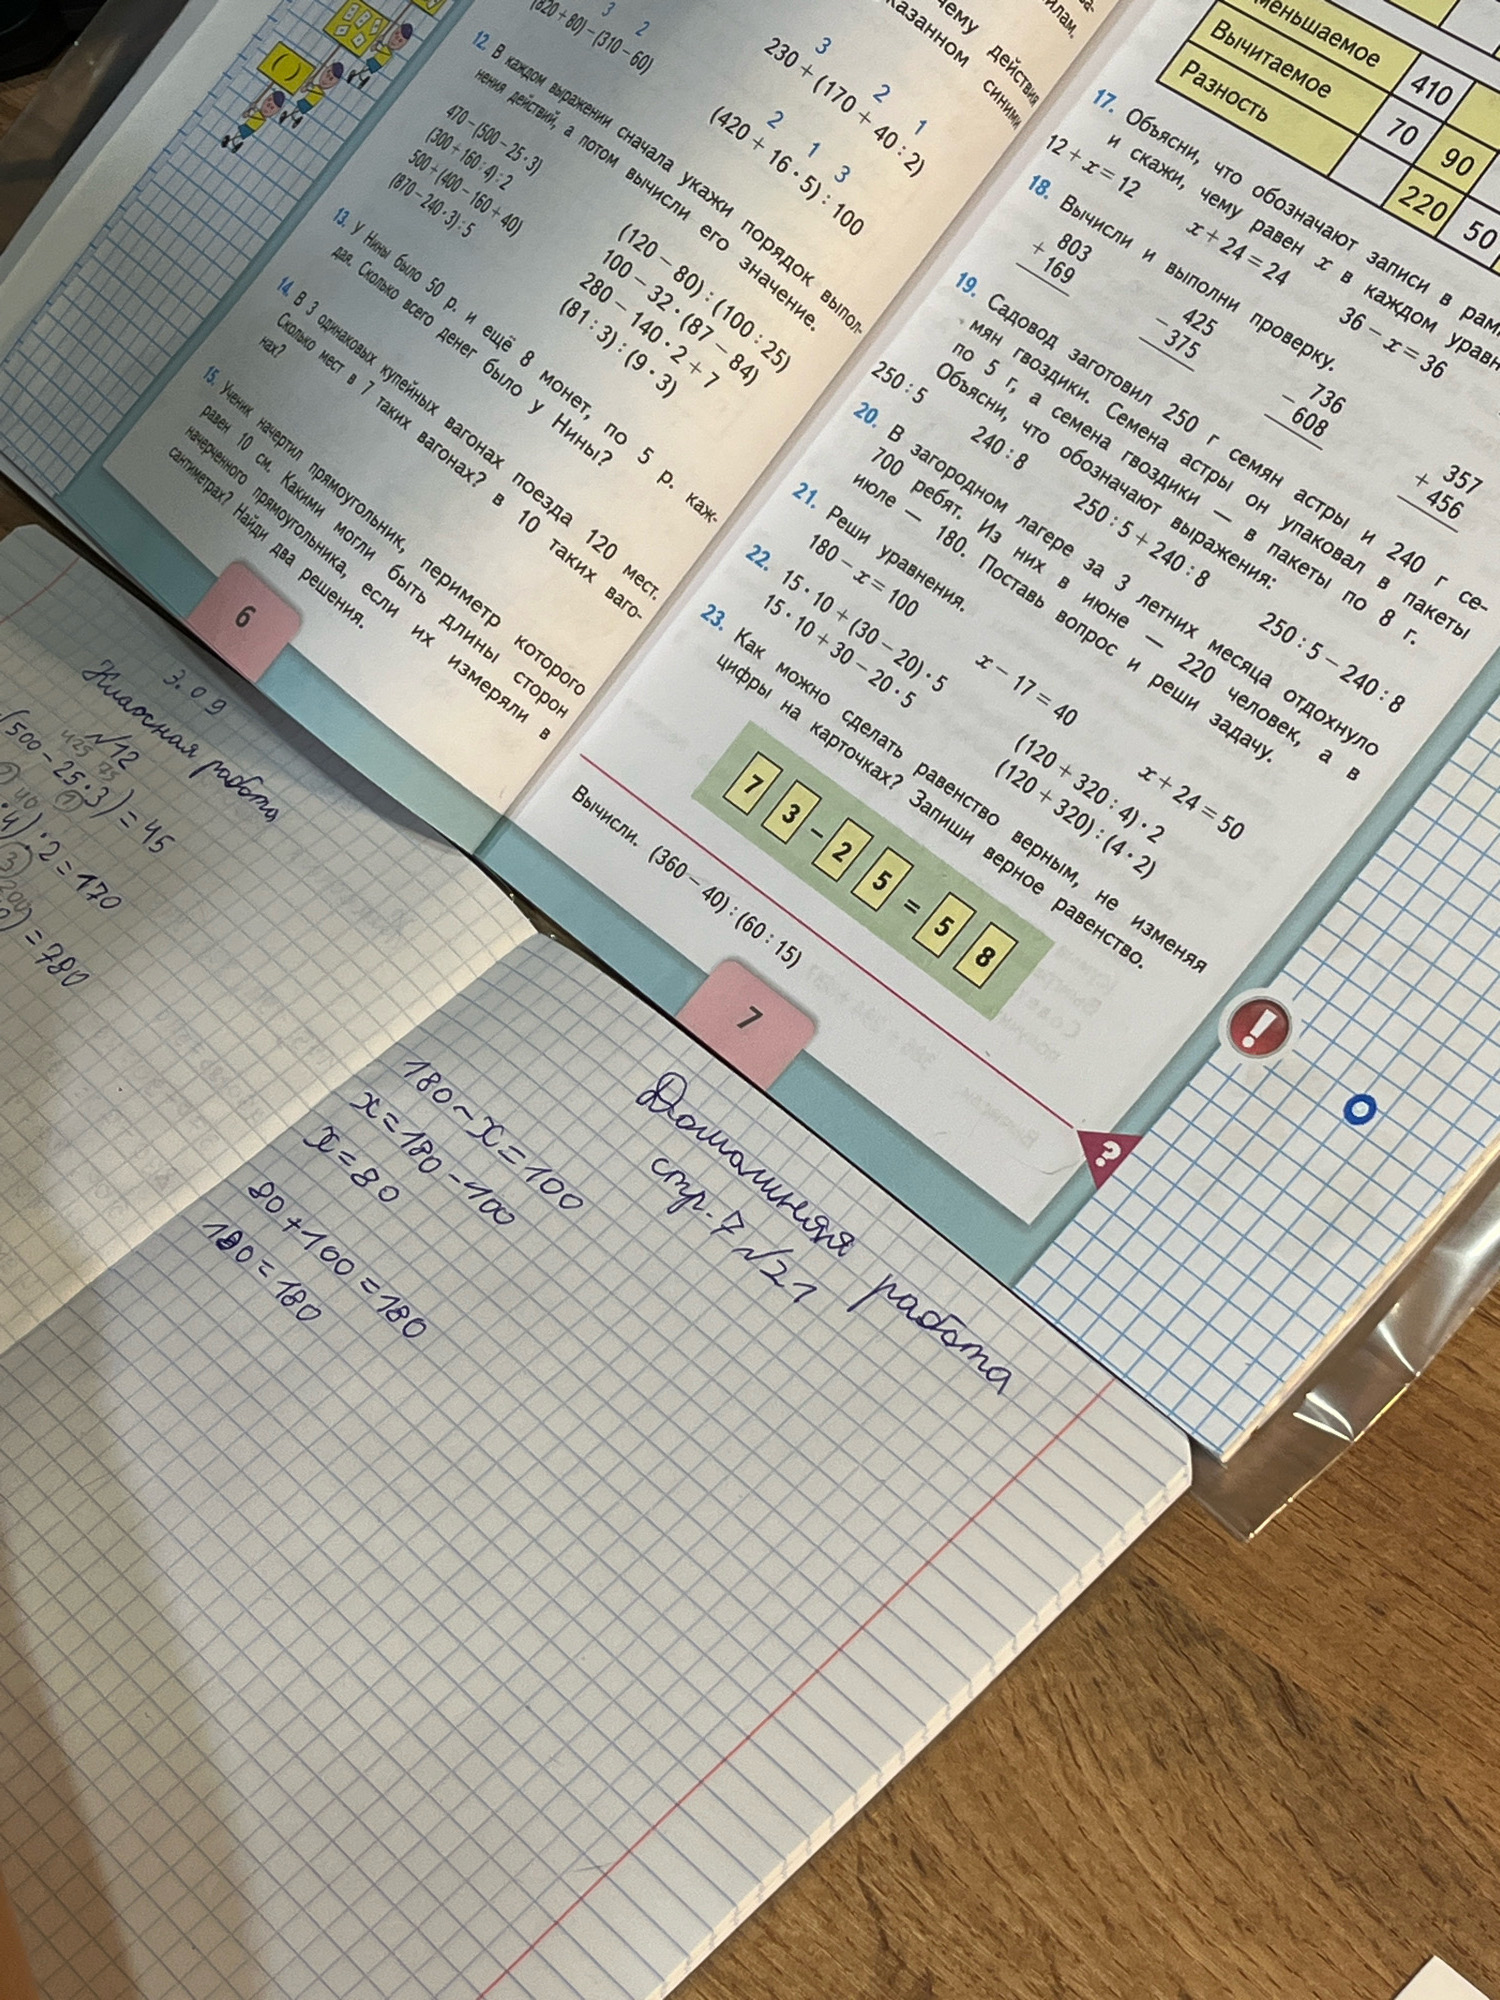 (820 + 80) − (310 − 60)
3 2
230 + (170 + 40 : 2)
3 2 1
(420 + 16 · 5) : 100
2 1 3
чему действия
казанном синими
12. В каждом выражении сначала укажи порядок выпол-
нения действий, а потом вычисли его значение.
470 − (500 − 25 · 3)
(300 + 160 : 4) : 2
500 + (400 − 160 + 40)
(870 − 240 · 3) : 5
(120 − 80) : (100 : 25)
100 − 32 · (87 − 84)
280 − 140 · 2 + 7
(81 : 3) : (9 · 3)
13. У Нины было 50 р. и ещё 8 монет, по 5 р. каж-
дая. Сколько всего денег было у Нины?
14. В 3 одинаковых купейных вагонах поезда 120 мест.
Сколько мест в 7 таких вагонах? в 10 таких ваго-
нах?
15. Ученик начертил прямоугольник, периметр которого
равен 10 см. Какими могли быть длины сторон
начерченного прямоугольника, если их измеряли в
сантиметрах? Найди два решения.
6
Вычитаемое
Разность
410
70
90
220
50
17. Объясни, что обозначают записи в
и скажи, чему равен x в каждом
12 + x = 12 x + 24 = 24 36 − x = 36
18. Вычисли и выполни проверку.
+ 803
169
− 425
375
− 736
608
+ 357
456
19. Садовод заготовил 250 г семян астры и 240 г се-
мян гвоздики. Семена астры он упаковал в пакеты
по 5 г, а семена гвоздики — в пакеты по 8 г.
Объясни, что обозначают выражения:
250 : 5 240 : 8 250 : 5 + 240 : 8 250 : 5 − 240 : 8
20. В загородном лагере за 3 летних месяца отдохнуло
700 ребят. Из них в июне — 220 человек, а в
июле — 180. Поставь вопрос и реши задачу.
21. Реши уравнения.
180 − x = 100 x − 17 = 40 x + 24 = 50
22. 15 · 10 + (30 − 20) · 5 (120 + 320 : 4) · 2
15 · 10 + 30 − 20 · 5 (120 + 320) : (4 · 2)
23. Как можно сделать равенство верным, не изменяя
цифры на карточках? Запиши верное равенство.
7 3 − 2 5 = 5 8
Вычисли. (360 − 40) : (60 : 15)
7
!
?
3.09
Классная работа
№12
(500 − 25·3) = 45
·4)·2 = 170
) = 780
Домашняя работа
стр. 7 №21
180 − x = 100
x = 180 − 100
x = 80
80 + 100 = 180
180 = 180